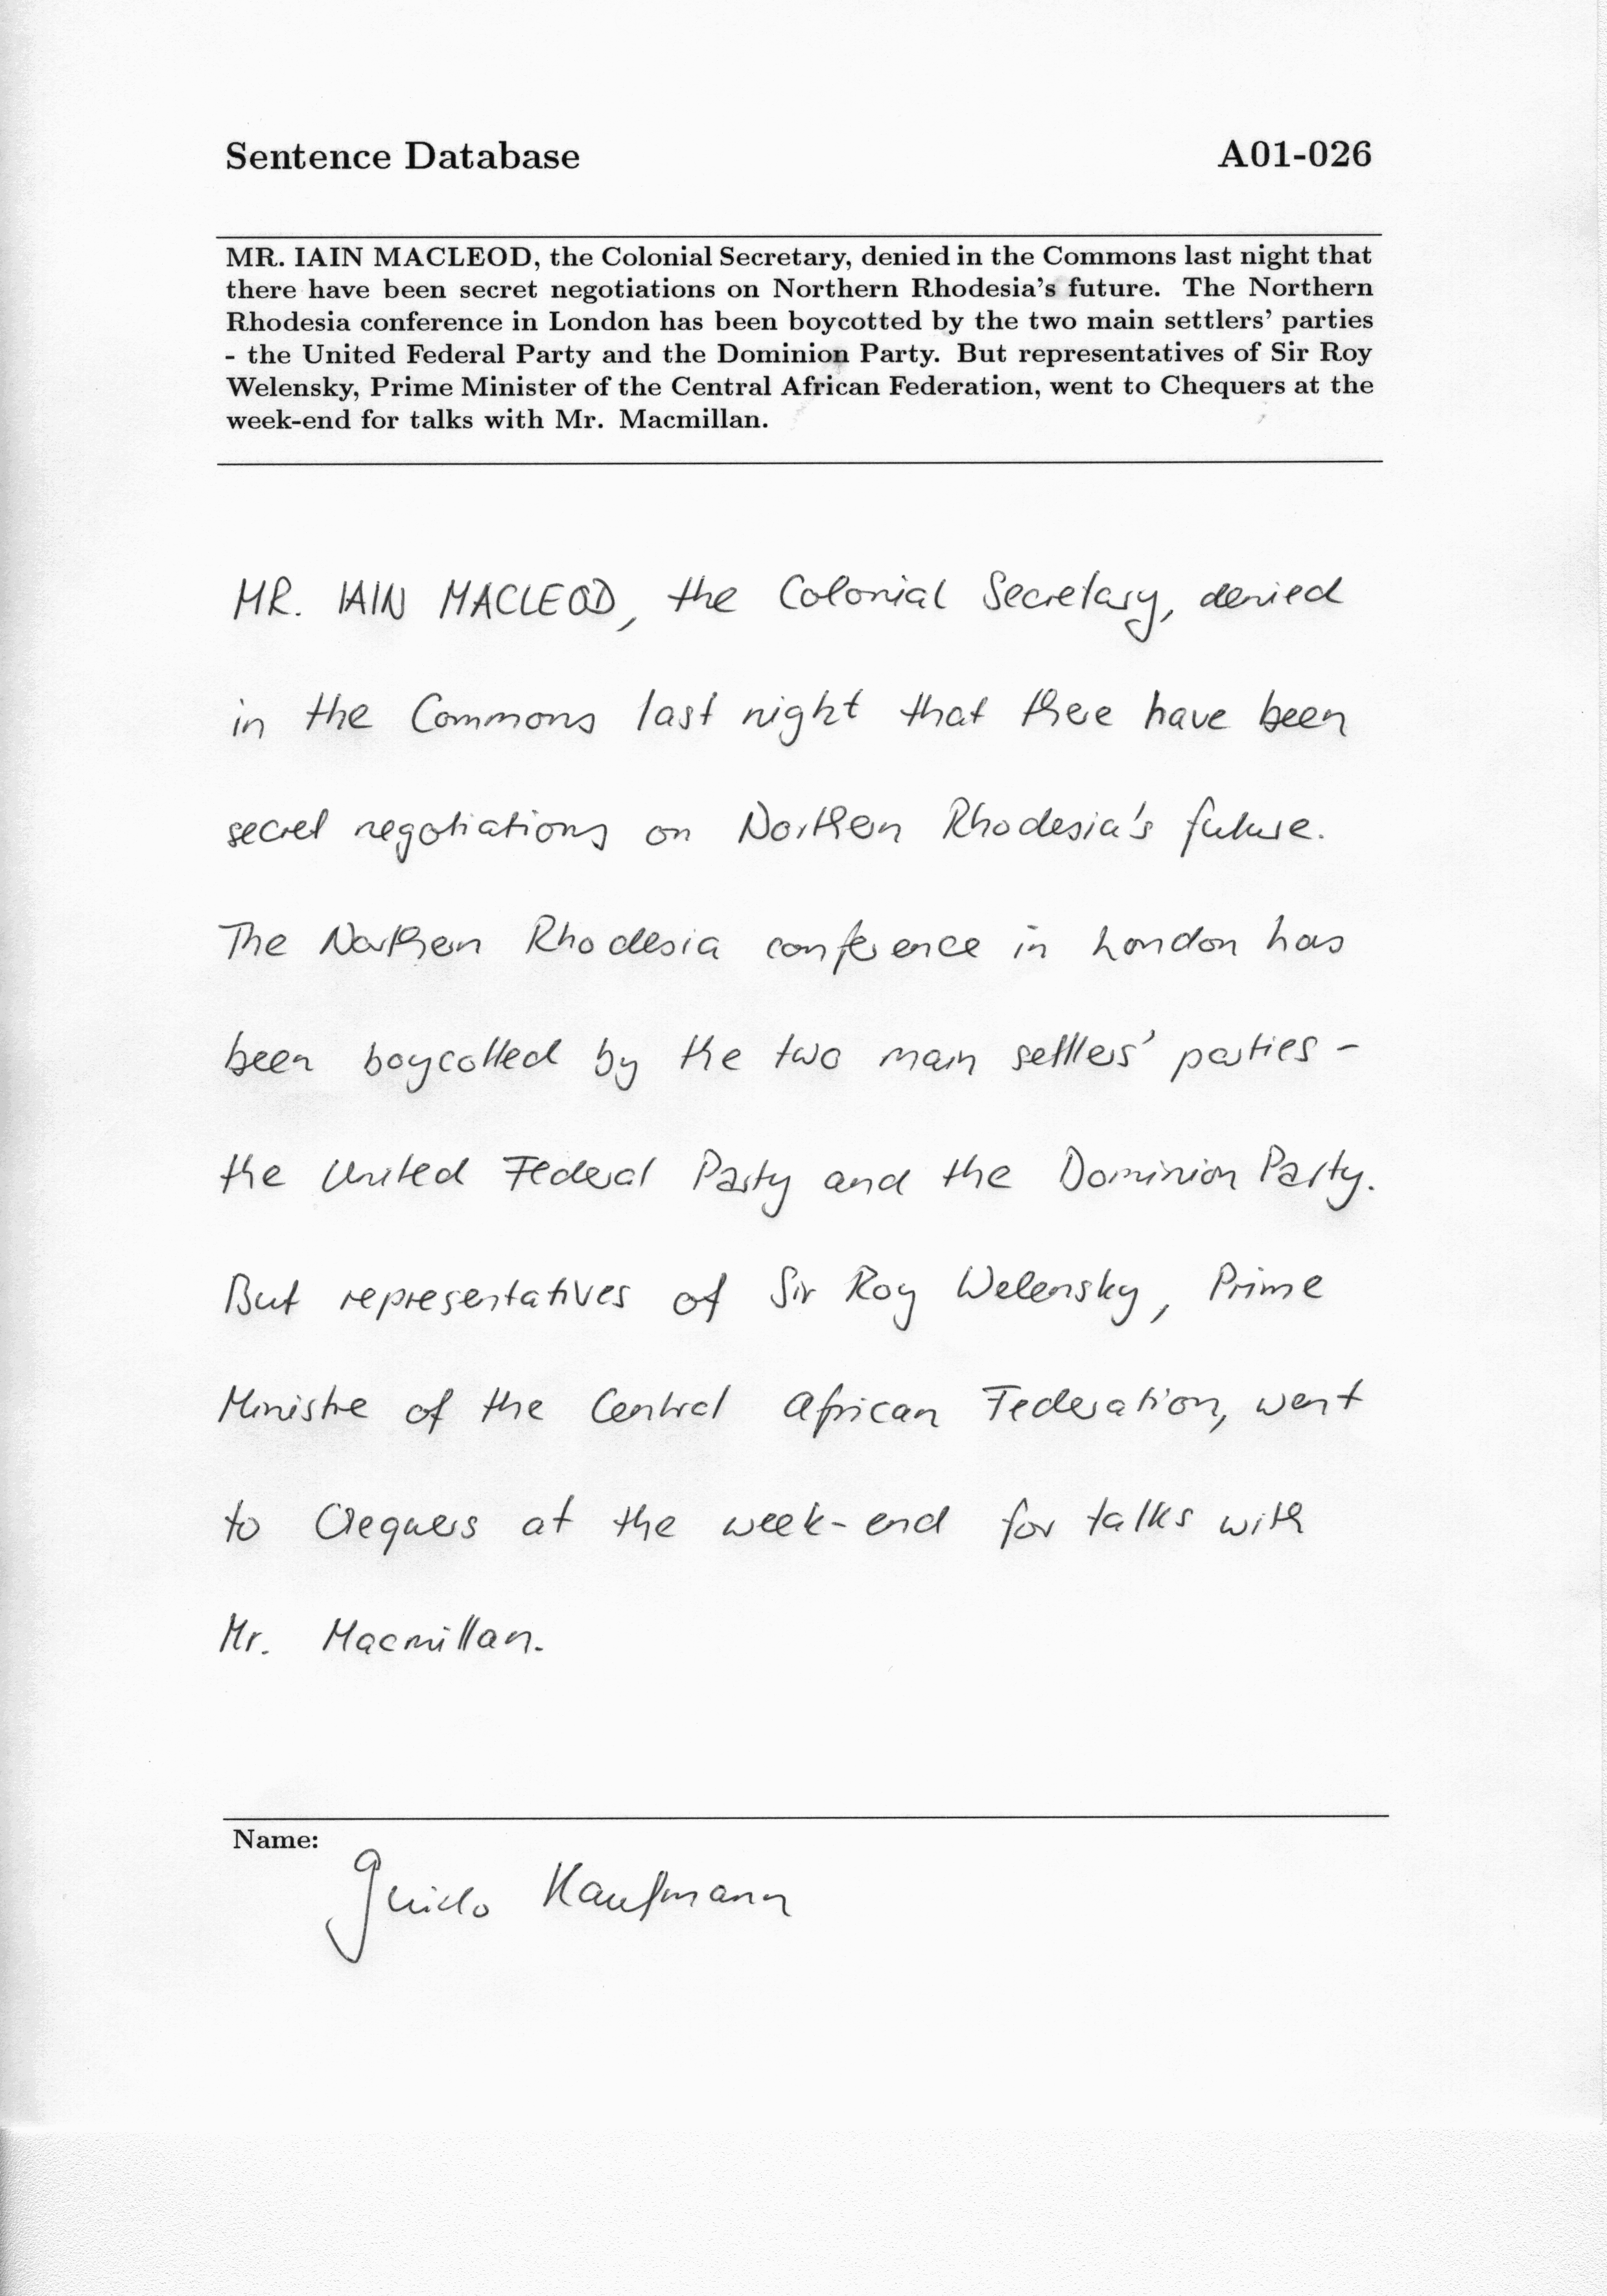 Sentence Database A01-026
MR. IAIN MACLEOD, the Colonial Secretary, denied in the Commons last night that
there have been secret negotiations on Northern Rhodesia's future. The Northern
Rhodesia conference in London has been boycotted by the two main settlers' parties
- the United Federal Party and the Dominion Party. But representatives of Sir Roy
Welensky, Prime Minister of the Central African Federation, went to Chequers at the
week-end for talks with Mr. Macmillan.
MR. IAIN MACLEOD, the Colonial Secretary, denied
in the Commons last night that there have been
secret negotiations on Northern Rhodesia's future.
The Northern Rhodesia conference in London has
been boycotted by the two main settlers' parties -
the United Federal Party and the Dominion Party.
But representatives of Sir Roy Welensky, Prime
Ministre of the Central African Federation, went
to Chequers at the week-end for talks with
Mr. Macmillan.
Name:
Guido Kaufmann